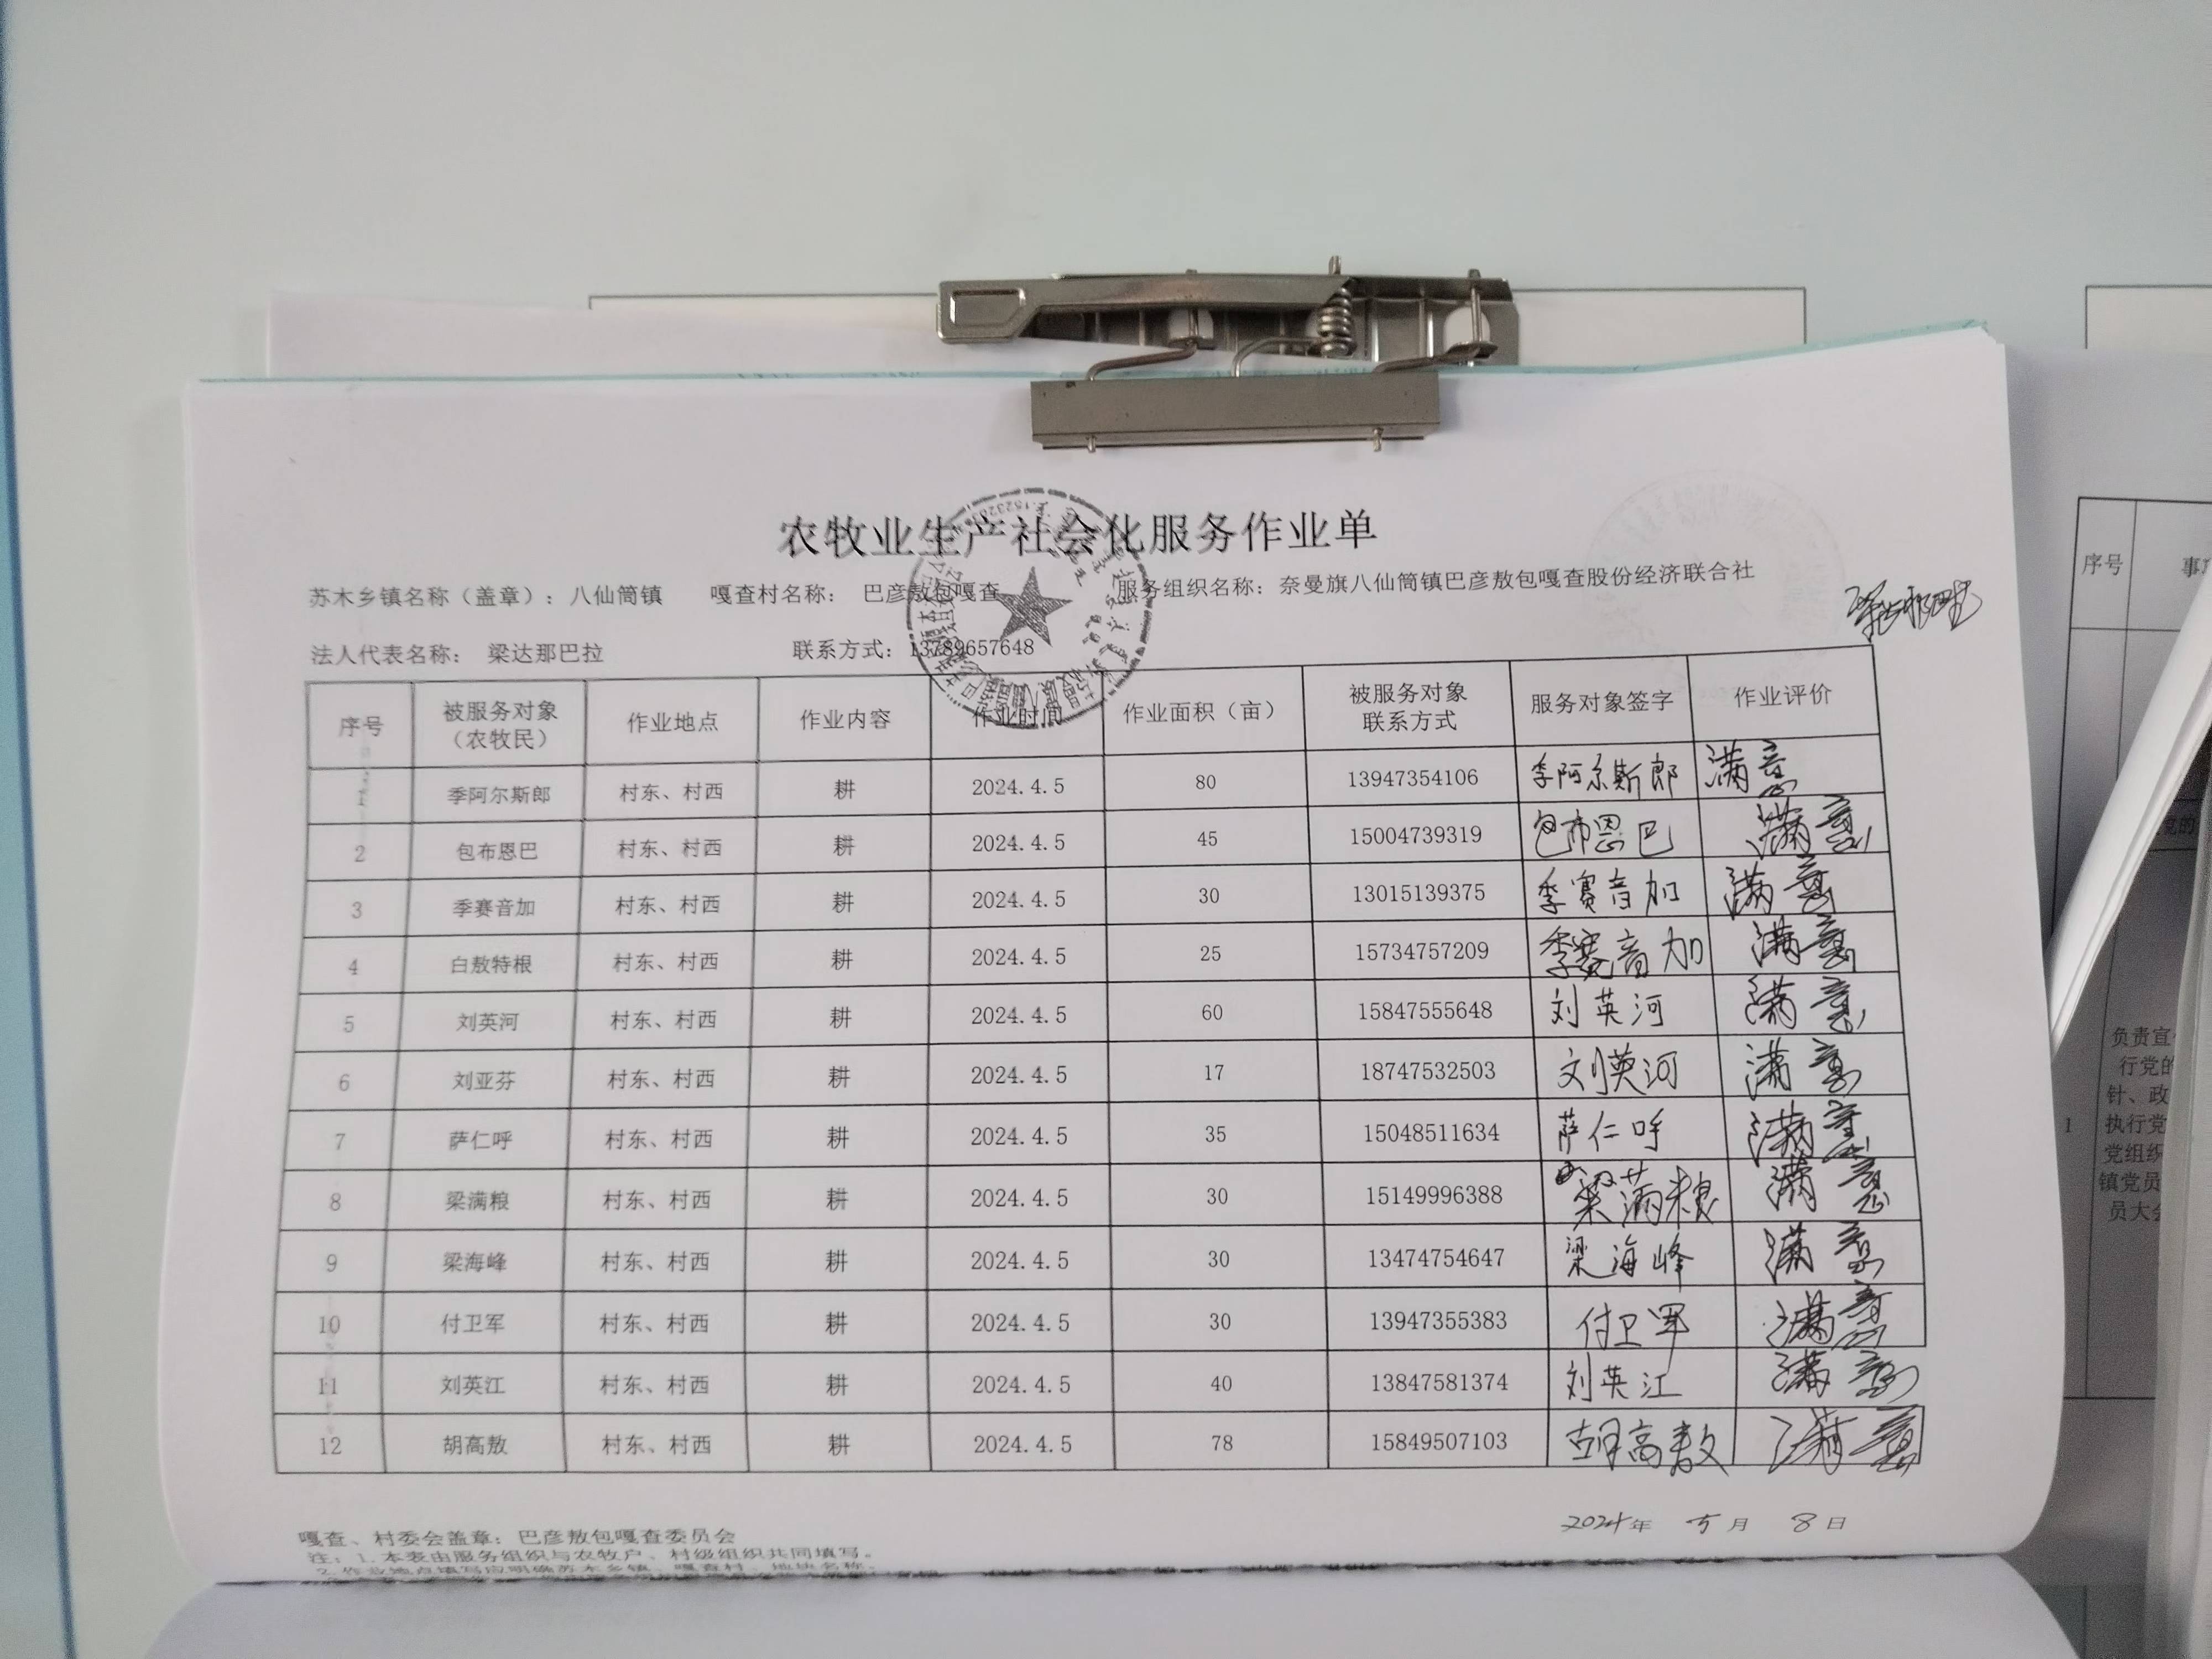 农牧业生产社会化服务作业单
苏木乡镇名称（盖章）：八仙筒镇 嘎查村名称： 巴彦敖包嘎查 服务组织名称：奈曼旗八仙筒镇巴彦敖包嘎查股份经济联合社
法人代表名称： 梁达那巴拉 联系方式：13789657648
序号 被服务对象（农牧民） 作业地点 作业内容 作业时间 作业面积（亩） 被服务对象联系方式 服务对象签字 作业评价
1 季阿尔斯郎 村东、村西 耕 2024.4.5 80 13947354106 季阿尔斯郎 满意
2 包布恩巴 村东、村西 耕 2024.4.5 45 15004739319 包布恩巴 满意
3 季赛音加 村东、村西 耕 2024.4.5 30 13015139375 季赛音加 满意
4 白敖特根 村东、村西 耕 2024.4.5 25 15734757209 季赛音加 满意
5 刘英河 村东、村西 耕 2024.4.5 60 15847555648 刘英河 满意
6 刘亚芬 村东、村西 耕 2024.4.5 17 18747532503 刘英河 满意
7 萨仁呼 村东、村西 耕 2024.4.5 35 15048511634 萨仁呼 满意
8 梁满粮 村东、村西 耕 2024.4.5 30 15149996388 梁满粮 满意
9 梁海峰 村东、村西 耕 2024.4.5 30 13474754647 梁海峰 满意
10 付卫军 村东、村西 耕 2024.4.5 30 13947355383 付卫军 满意
11 刘英江 村东、村西 耕 2024.4.5 40 13847581374 刘英江 满意
12 胡高敖 村东、村西 耕 2024.4.5 78 15849507103 胡高敖 满意
2024年 5月 8日
嘎查、村委会盖章：巴彦敖包嘎查委员会
注：1.本表由服务组织与农牧户、村级组织共同填写。
2.作业地点填写应明确苏木乡镇、嘎查村、地块名称。
序号
1
负责宣
行党的
针、政
执行党
党组织
镇党员
员大会